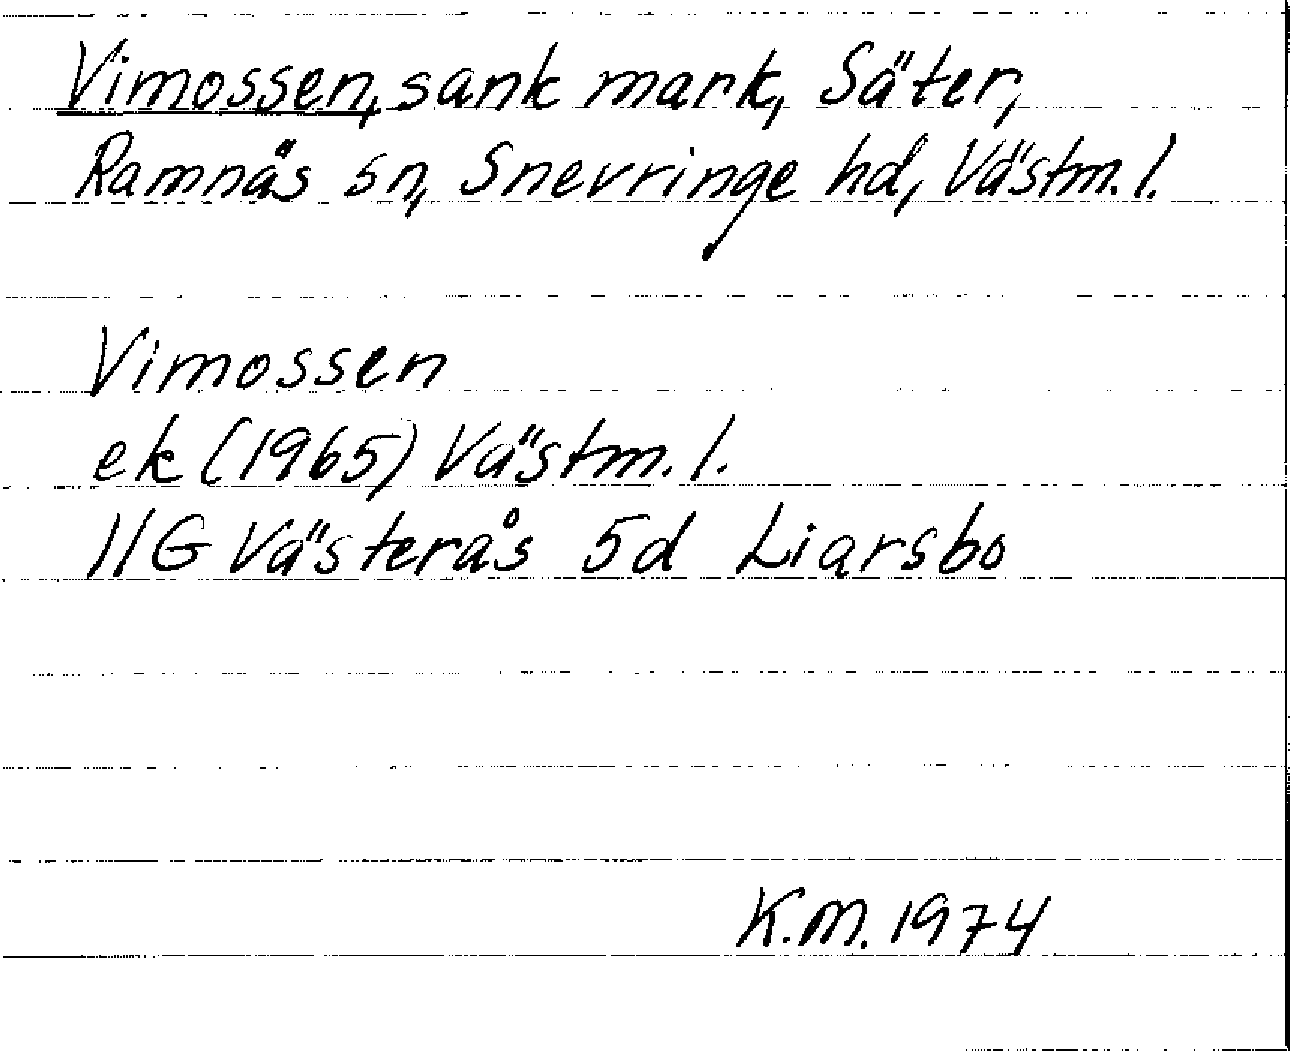 Vimossen, sank mark, Säter,
Ramnäs sn, Snevringe hd, Västm. l.
Vimossen
ek (1965) Västm. l.
11G Västerås 5d Liarsbo
K.M. 1974